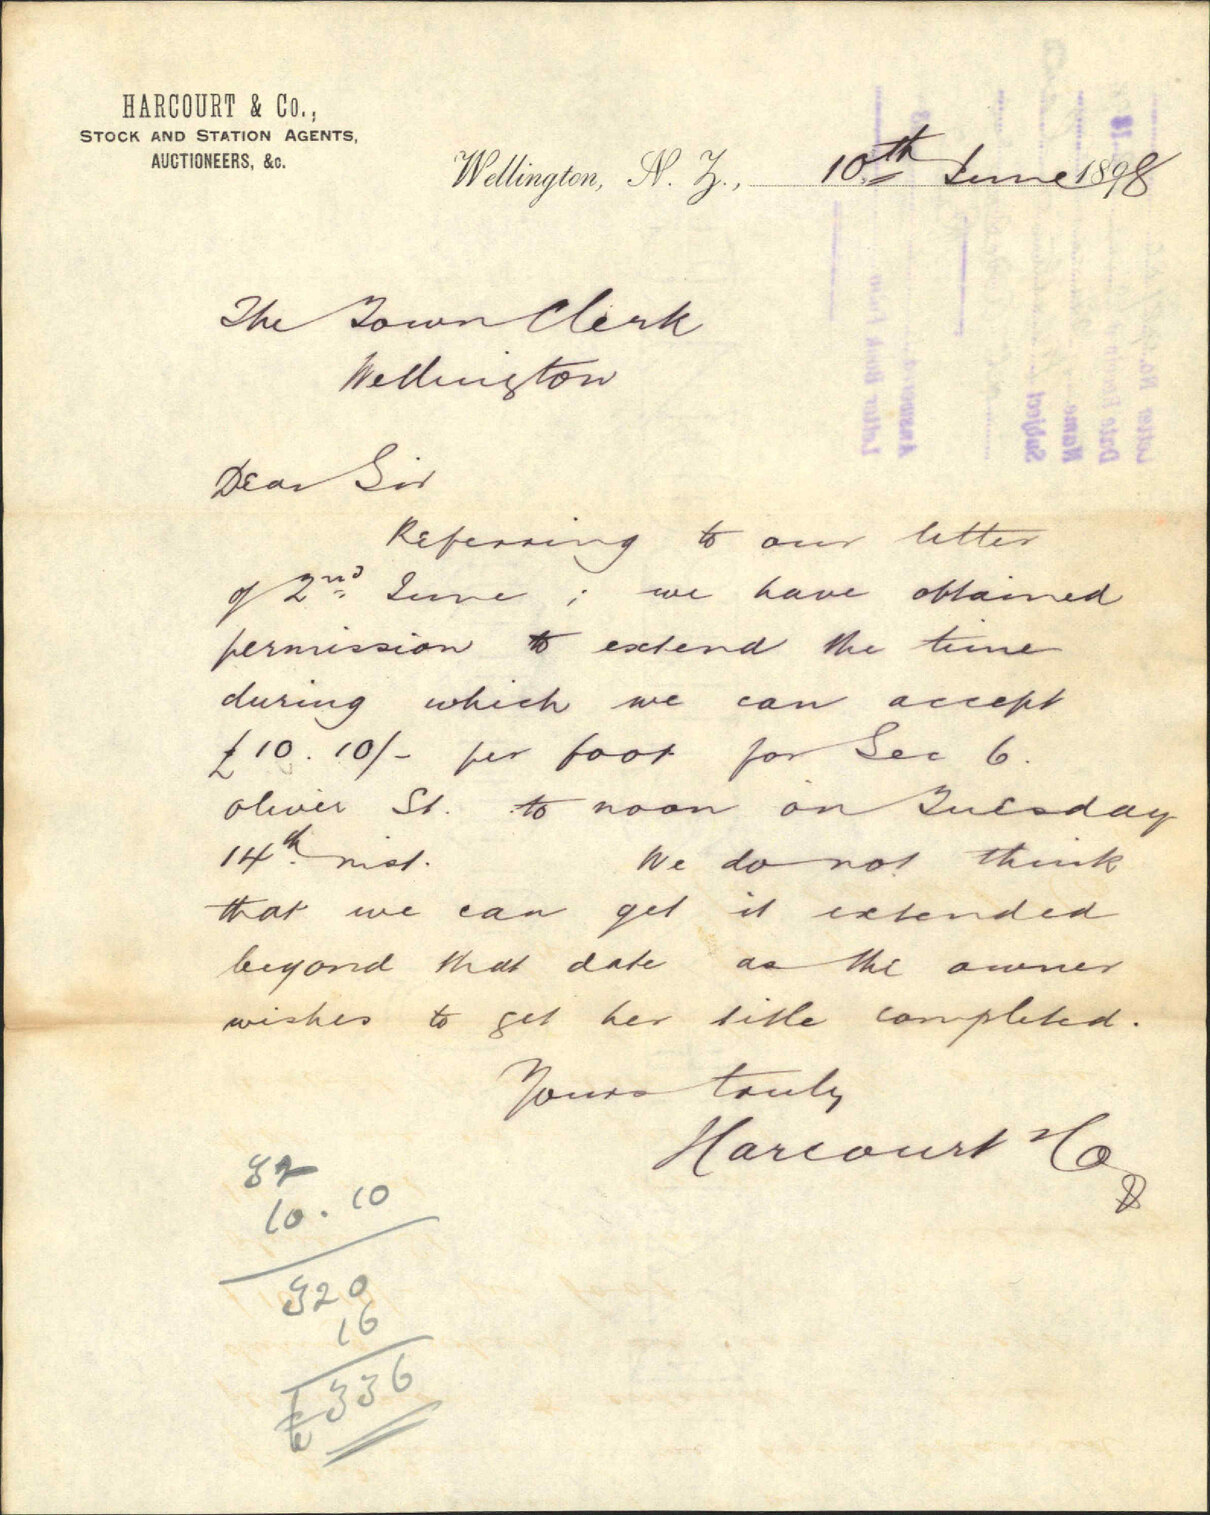 HARCOURT & Co.,
STOCK AND STATION AGENTS,
AUCTIONEERS, &c.
Wellington, N. Z., 10th June 1898
The Town Clerk
Wellington
Dear Sir
Referring to our letter
of 2nd June ; we have obtained
permission to extend the time
during which we can accept
£10.10/- per foot for Sec 6.
Oliver St. to noon on Tuesday
14th inst. We do not think
that we can get it extended
beyond that date as the owner
wishes to get her title completed.
Yours truly
Harcourt & Co
32
10.10
320
16
£336
Letter No.
Date
Name
Subject
Answered
Letter Book
18